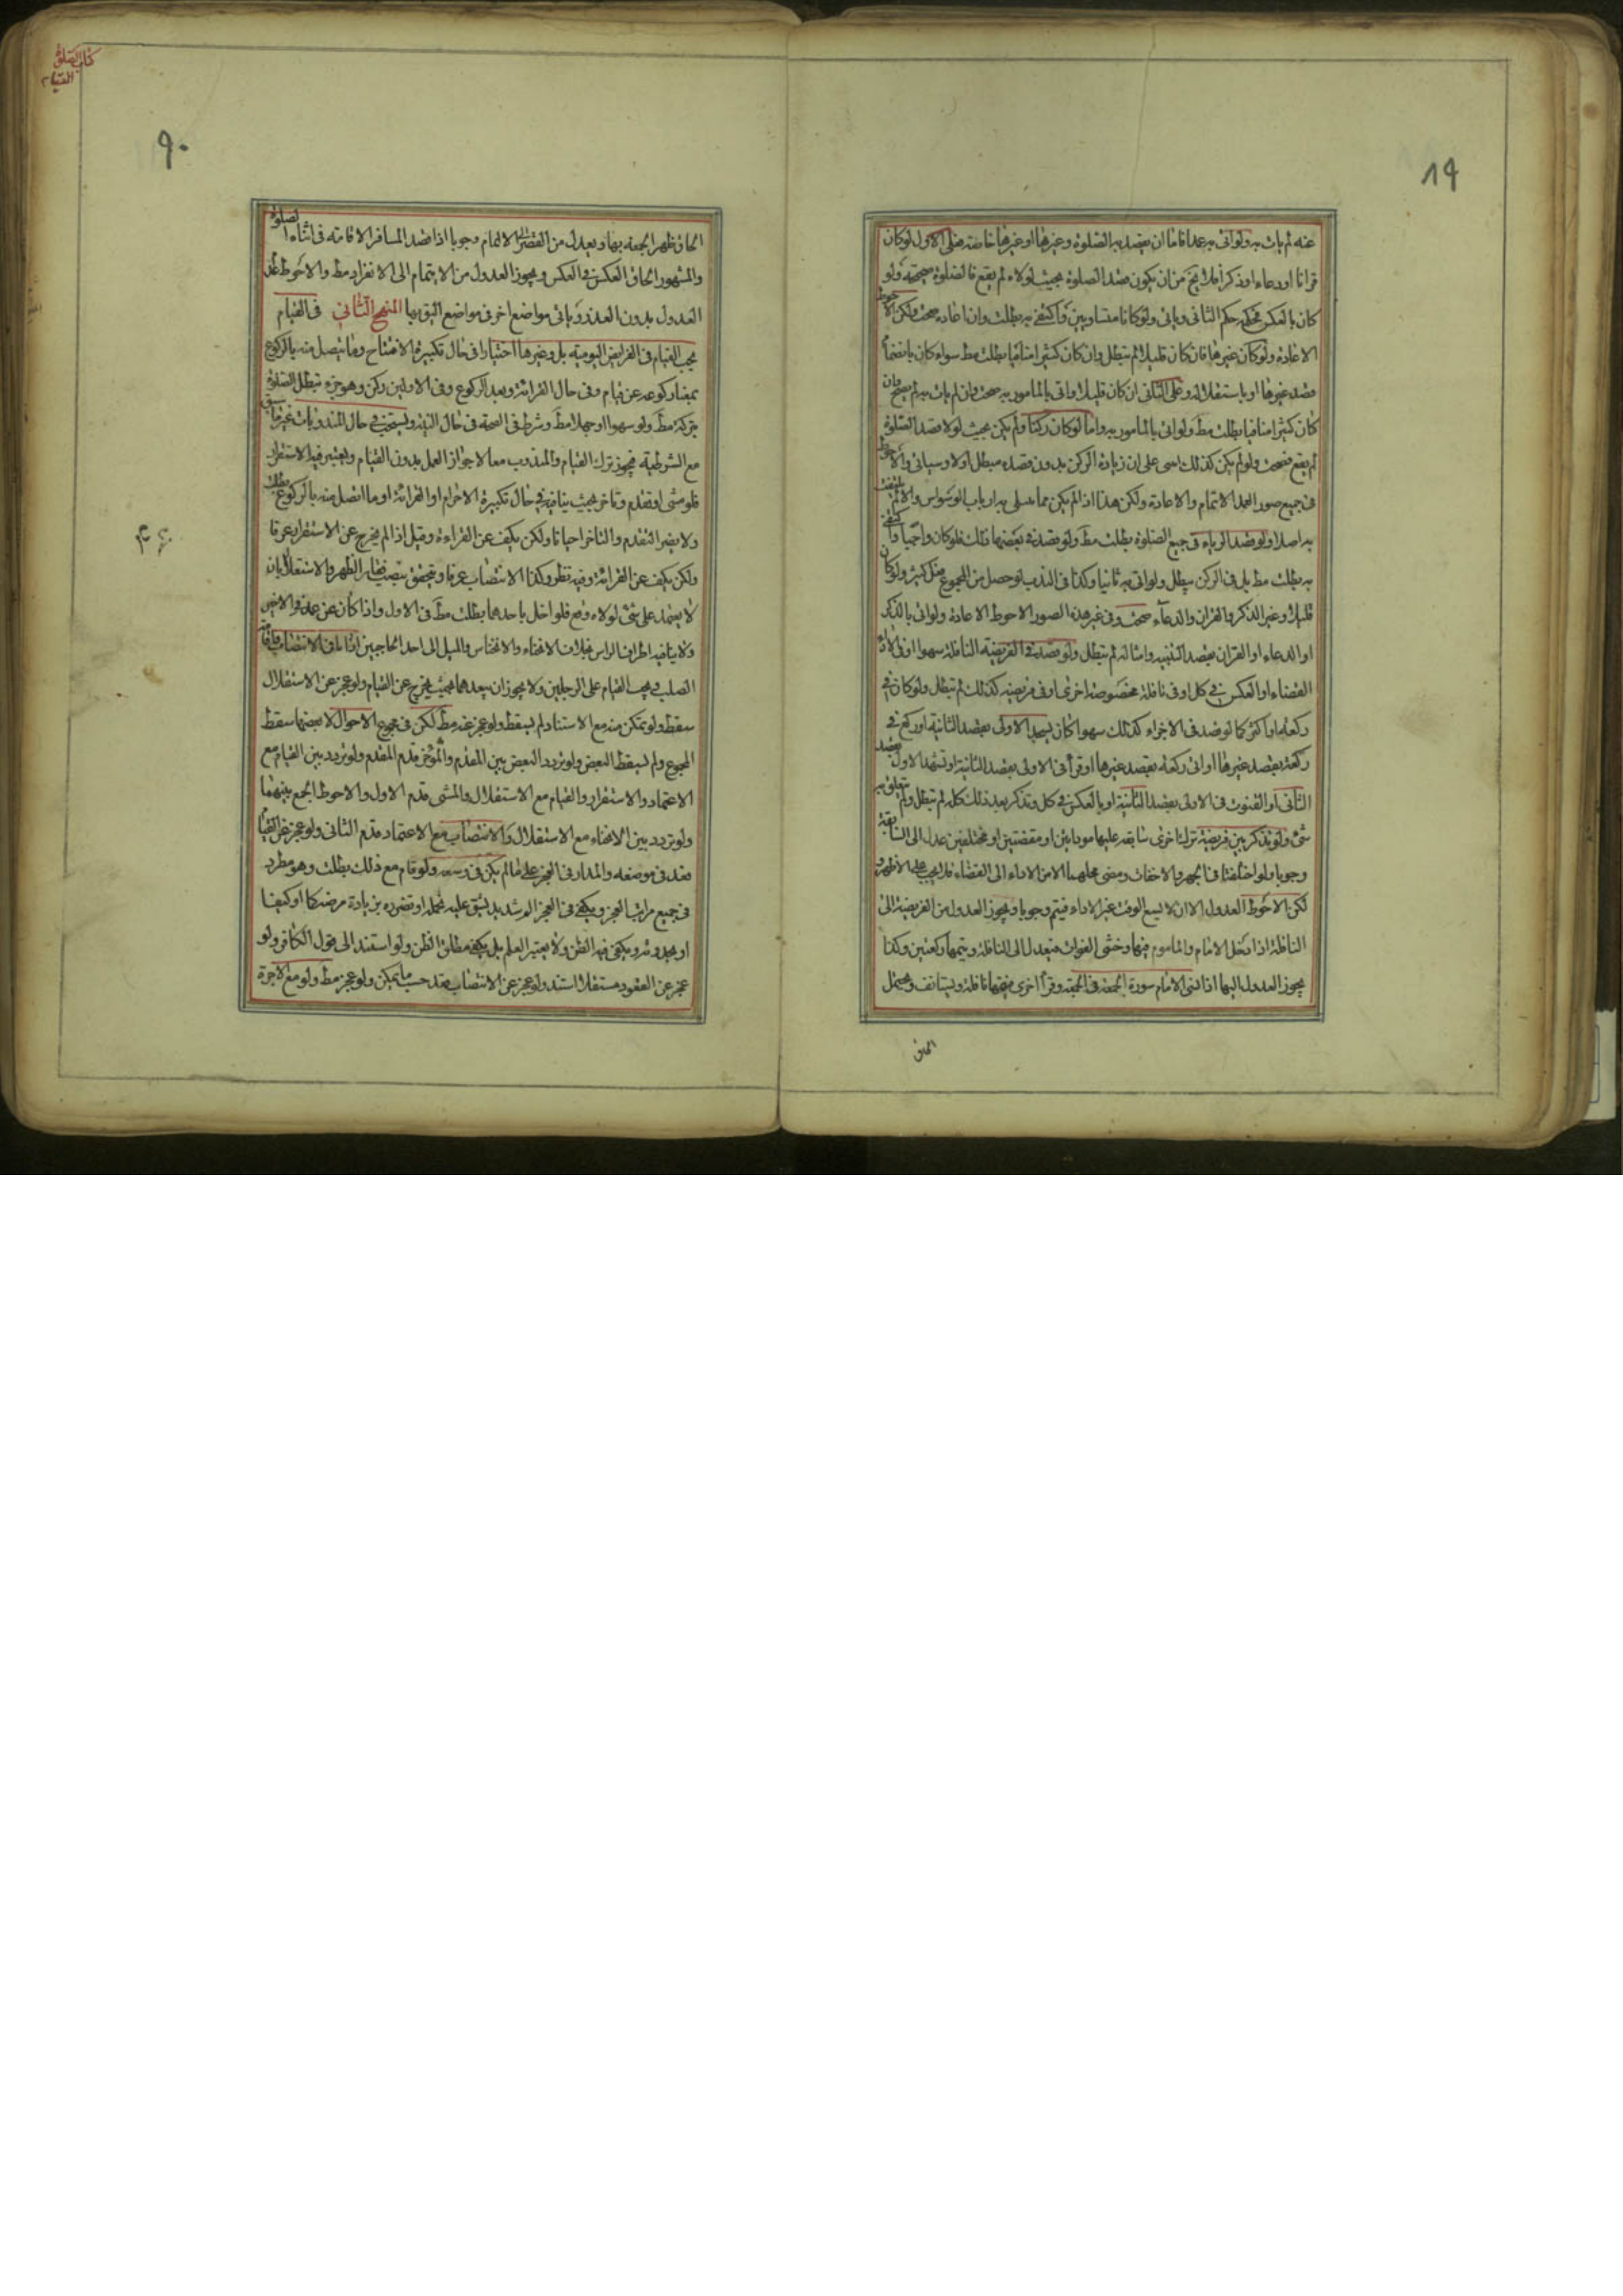 ٨٩
عنه لم يات به ولو اتى به عمدا فاما ان يقصد به الصلوة وغيرها او غيرها خاصة فعلى الاول لو كان
قرانا او دعاء او ذكرا فلا يخ من ان يكون قصد الصلوة بحيث لولاه لم يقع فالصلوة صحيحة ولو
كان بالعكس فحكمه حكم الثانى وياتى ولو كانا متساويين واكتفى به بطلت وان اعاده صحت ولكن الاحوط
الاعادة ولو كان غيرها فان كان قليلا لم تبطل وان كان كثيرا منافيا بطلت مط سواء كان بانضمام
قصد غيرها او باستقلاله وعلى الثانى ان كان قليلا واتى بالمامور به صحت وان لم يات به لم يصح وان
كان كثيرا منافيا بطلت مط ولو اتى بالمامور به واما لو كان ركنا ولم يكن بحيث لولا قصد الصلوة
لم يقع فصحت ولو لم يكن كذلك بنى على ان زيادة الركن بدون قصده مبطل اولا وسياتى والاحوط
فى جميع صور العمد الاتمام والاعادة ولكن هذا اذا لم يكن مما يبتلى به ارباب الوسواس والا لم يلتفت
به اصلا ولو قصد الرياء فى جميع الصلوة بطلت مط ولو قصد فى بعضها فكذلك فلو كان واجبا واكتفى
به بطلت مط بل فى الركن يبطل ولو اتى به ثانيا وكذا فى الندب لو حصل من المجموع فعل كثير ولو كان
قليلا وغير الذكر والقران والدعاء صحت وفى غير هذه الصور الاحوط الاعادة ولو اتى بالذكر
او الدعاء او القران بقصد التنبيه وامثاله لم تبطل ولو قصد فى الفريضة النافلة سهوا او فى الاداء
القضاء او العكس فى كل او فى نافلة مخصوصة اخرى او فى فريضة كذلك لم تبطل ولو كان فى
ركعة او اكثر كما لو قصد فى الاجزاء كذلك سهوا كان يسجد الاولى بقصد الثانية او ركع فى
ركعة بقصد غيرها او اتى ركعة بقصد غيرها او قرأ فى الاولى بقصد الثانية او تشهد الاول بقصد
الثانى او القنوت فى الاولى بقصد الثانية او بالعكس فى كل وتذكر بعد ذلك كله لم تبطل ولم يتعلق به
شئ ولو تذكر بين فريضة ترك اخرى سابقة عليها مودايتين او مقضيتين او مختلفين عدل الى السابقة
وجوبا ولو اختلفتا فى الجهر والاخفات ومضى محلهما الا من الاداء الى القضاء فلا يجب على الاظهر و
لكن الاحوط العدول الا ان لا يسع الوقت غير الاداء فيتم وجوبا ويجوز العدول من الفريضة الى
النافلة اذا دخل الامام والماموم فيها وخشى الفوات فيعدل الى النافلة ويتمها ركعتين وكذا
يجوز العدول اليها اذا نسى الامام سورة الجمعة فى الجمعة وقرأ اخرى فيتمها نافلة ويستانف ويحتمل
الحاق
كتاب الصلوة
القيام
٩٠
الحاق ظهر الجمعة بها ويعدل من القصر الى الاتمام وجوبا اذا قصد المسافر الاقامة فى اثناء الصلوة
والمشهور الحاق العكس فى العكس ويجوز العدول من الايتمام الى الانفراد مط والاحوط عدم
العدول بدون العذر وياتى مواضع اخر فى مواضع اليق بها المنهج الثانى فى القيام
يجب القيام فى الفرايض اليومية بل وغيرها اختيارا فى حال تكبيرة الافتتاح وما يتصل منه بالركوع
بمعنا ركوعه عن قيام وفى حال القرائة وبعد الركوع وفى الاولين ركن وهو جزء تبطل الصلوة
بتركه مط ولو سهوا او جهلا مط وشرط فى الصحة فى حال النية ويستحب فى حال المندوبات غير ما سبق
مع الشرطية فيجوز ترك القيام والمندوب معا لا جواز العمل بدون القيام ويعتبر فيه الاستقرار
فلو مشى او تقدم وتاخر بحيث ينافيه فى حال تكبيرة الاحرام او القرائة او ما اتصل منه بالركوع بطلت
ولا يضر التقدم والتاخر احيانا ولكن يكف عن القراءة وقيل اذا لم يخرج عن الاستقرار عرفا
ولكن يكف عن القرائة وفيه نظر وكذا الانتصاب عرفا ويتحقق بنصب فقار الظهر والاستقلال بان
لا يعتمد على شئ لولاه وقع فلو اخل باحدهما بطلت مط فى الاول واذا كان عن عمد فى الاخير
ولا ينافيه اطراق الراس بخلاف الانحناء والانخناس والميل الى احد الجانبين اذا نافى الانتصاب
الصلب ويجب القيام على الرجلين ولا يجوز ان يبعدهما بحيث يخرج عن القيام ولو عجز عن الاستقلال
سقط ولو تمكن منه مع الاستناد لم يسقط ولو عجز عنه مط لكن فى مجموع الاحوال لا بعضها سقط
المجموع ولم يسقط البعض ولو تردد البعض بين المقدم والمؤخر قدم المقدم ولو تردد بين القيام مع
الاعتماد والاستقرار والقيام مع الاستقلال والمشى قدم الاول والاحوط الجمع بينهما
ولو تردد بين الانحناء مع الاستقلال والانتصاب مع الاعتماد قدم الثانى ولو عجز عن القيام
قعد فى موضعه والمدار فى العجز على ما لم يكن فى وسعه ولو قام مع ذلك بطلت وهو مطرد
فى جميع مراتب العجز ويكفى فى العجز الم شديد يشق عليه تحمله او تضرره بزيادة مرضه كما او كيفا
او بحدوثه ويكفى فيه الظن ولا يعتبر العلم بل يكفى مطلق الظن ولو استند الى قول الكافر ولو
عجز عن القعود مستقلا استند ولو عجز عن الانتصاب قعد حسب ما يمكن ولو عجز مط ولو مع الاجرة